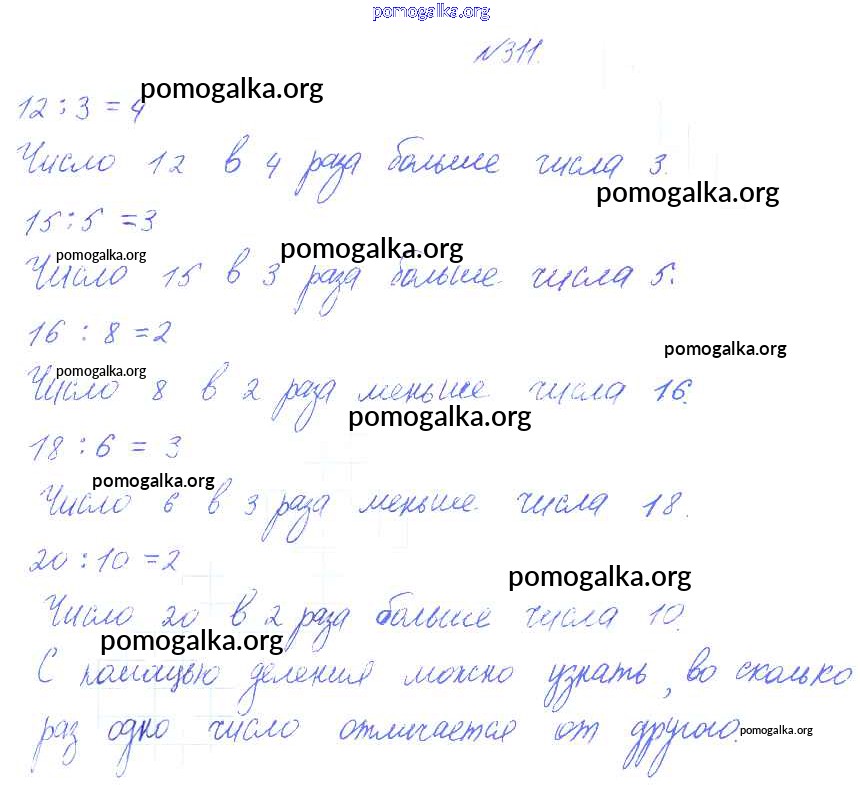 pomogalka.org
№311.
pomogalka.org
12 : 3 = 4
Число 12 в 4 раза больше числа 3.
pomogalka.org
15 : 5 = 3
pomogalka.org pomogalka.org
Число 15 в 3 раза больше числа 5.
16 : 8 = 2
pomogalka.org
pomogalka.org
Число 8 в 2 раза меньше числа 16.
pomogalka.org
18 : 6 = 3
pomogalka.org
Число 6 в 3 раза меньше числа 18.
20 : 10 = 2
pomogalka.org
Число 20 в 2 раза больше числа 10.
pomogalka.org
С помощью деления можно узнать, во сколько
раз одно число отличается от другого.
pomogalka.org